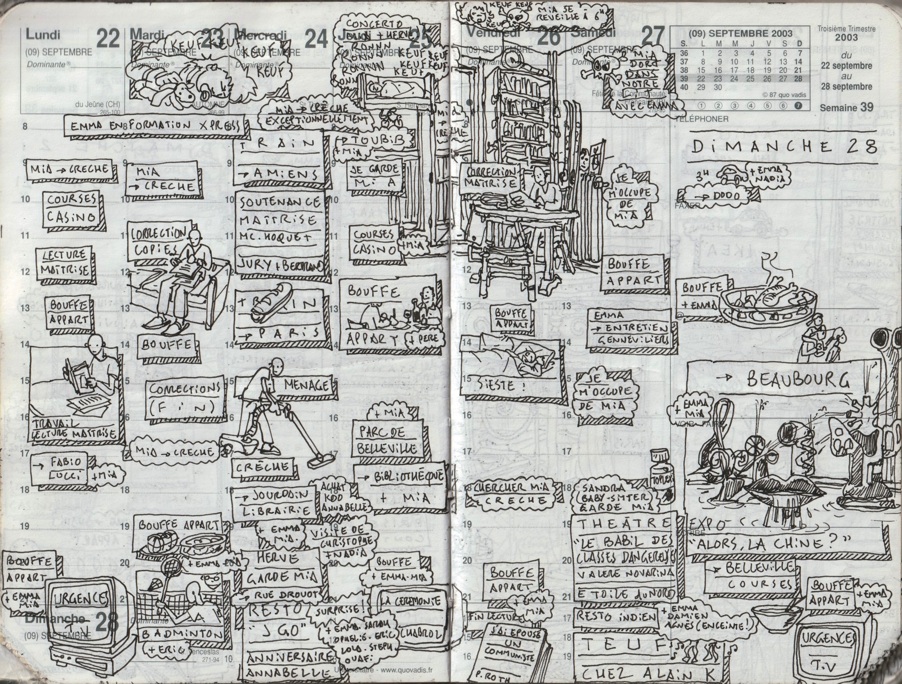 Lundi 22
(09) SEPTEMBRE
Dominante
du Jeûne (CH)
8
EMMA EN FORMATION XPRESS
9
MIA → CRECHE
10
COURSES
CASINO
11
LECTURE
MAÎTRISE
12
13
BOUFFE
APPART
14
15
16
TRAVAIL
LECTURE MAÎTRISE
17
→ FABIO
LUCCI
+ MIA
18
19
20
BOUFFE
APPART
+ EMMA
MIA
URGENCES
Dimanche 28
(09) SEPTEMBRE
Mardi 23
KEUF
KEUF
MIA
→ CRECHE
CORRECTION
COPIES
BOUFFE
CORRECTIONS
(FIN)
MIA → CRECHE
BOUFFE APPART
BADMINTON
+ ERIC
Mercredi 24
(09) SEPTEMBRE
MIA → CRECHE
EXCEPTIONNELLEMENT
TRAIN
→ AMIENS
SOUTENANCE
MAÎTRISE
MC. HOQUET
JURY + BERTRAND
TRAIN
→ PARIS
MENAGE
CRÈCHE
→ JOURDAIN
LIBRAIRIE
+ EMMA
MIA
HERVE
GARDE MIA
→ RUE DROUOT
RESTO
"J GO"
ANNIVERSAIRE
ANNABELLE
ACHAT
KDO
ANNABELLE
VISITE DE
CHRISTOPHE
+ NADIA
SURPRISE!
25
CONCERTO
KEUF KEUF
KEUF
→ TOUBIB
+ MIA
JE GARDE
MIA
COURSES
CASINO
+ MIA
BOUFFE
APPART
+ PERE
+ MIA
PARC DE
BELLEVILLE
→ BIBLIOTHÈQUE
+ MIA
BOUFFE
+ EMMA-MIA
LA CEREMONIE
CHABROL
www.quovadis.fr
Vendredi 26
KEUF KEUF
MIA SE
REVEILLE À 6H
CORRECTION
MAITRISE
BOUFFE
APPART
SIESTE!
CHERCHER MIA
CRECHE
BOUFFE
APPART
+ EMMA
MIA
FIN LECTURE
J'AI EPOUSÉ
UN
COMMUNISTE
P. ROTH
Samedi 27
(09) SEPTEMBRE
Dominante
MIA
DORT
DANS
NOTRE
LIT
AVEC EMMA
JE
M'OCCUPE
DE
MIA
BOUFFE
APPART
EMMA
→ ENTRETIEN
GENNEVILLIERS
JE
M'OCCUPE
DE MIA
SANDRA
BABY-SITTER
GARDE MIA
THEÂTRE
"LE BABIL DES
CLASSES DANGEREUSES
VALERE NOVARINA
ETOILE du NORD
RESTO INDIEN
+ EMMA
DAMIEN
AGNÈS (ENCEINTE!)
TEUF
CHEZ ALAIN K
(09) SEPTEMBRE 2003
S. L M M J V S D
36 1 2 3 4 5 6 7
37 8 9 10 11 12 13 14
38 15 16 17 18 19 20 21
39 22 23 24 25 26 27 28
40 29 30
© 87 quo vadis
1 2 3 4 5 6 7
Troisième Trimestre
2003
du
22 septembre
au
28 septembre
Semaine 39
TÉLÉPHONER
DIMANCHE 28
3H
+ EMMA
NADIA
→ DODO
BOUFFE
+ EMMA
→ BEAUBOURG
+ EMMA
MIA
EXPO
"ALORS, LA CHINE?"
→ BELLEVILLE
COURSES
BOUFFE
APPART
+ EMMA
MIA
URGENCES
T.V